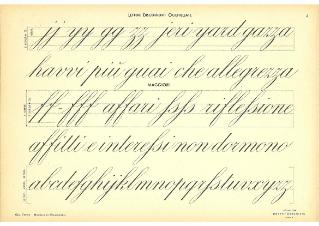 LETTERE DISCENDENTI OCCHIELLATE
jj yy gg zz jeri yard gazza
havvi più guai che allegrezza
MAGGIORI
ff-fff affari fsfs riflefsione
affitti e interefsi non dormono
abcdefghijklmnopqrfstuvxyzz